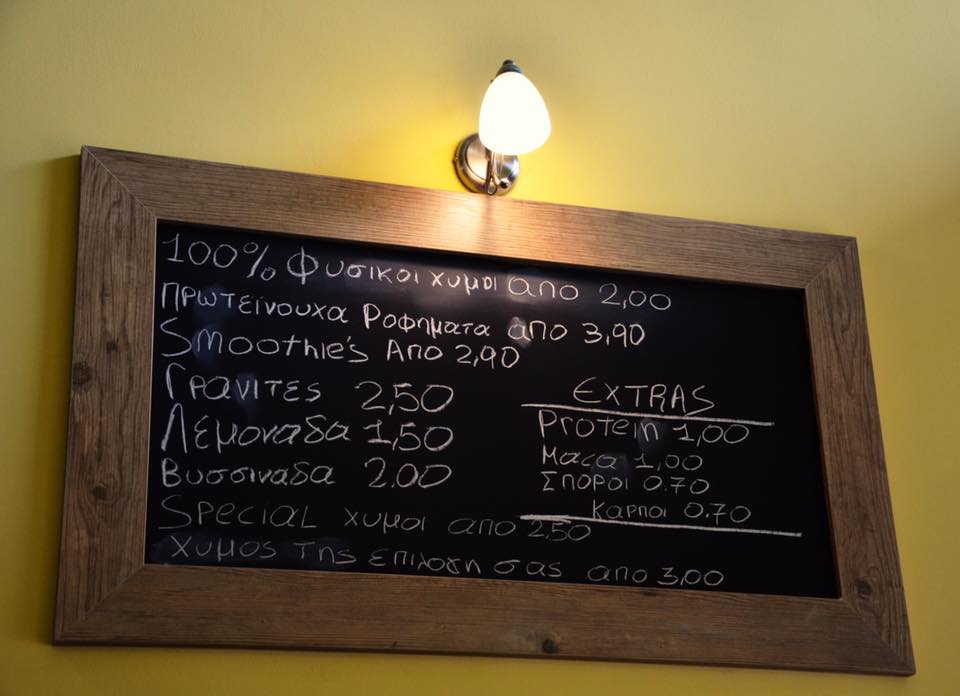 100% Φυσικοι χυμοι απο 2,00
Πρωτεϊνουχα Ροφηματα απο 3,90
Smoothie's Απο 2,90
Γρανιτες 2,50
Λεμοναδα 1,50
Βυσσιναδα 2.00
Special χυμοι απο 2,50
χυμος της επιλογη σας απο 3,00
EXTRAS
Protein 1,00
Maca 1,00
Σποροι 0.70
Καρποι 0.70